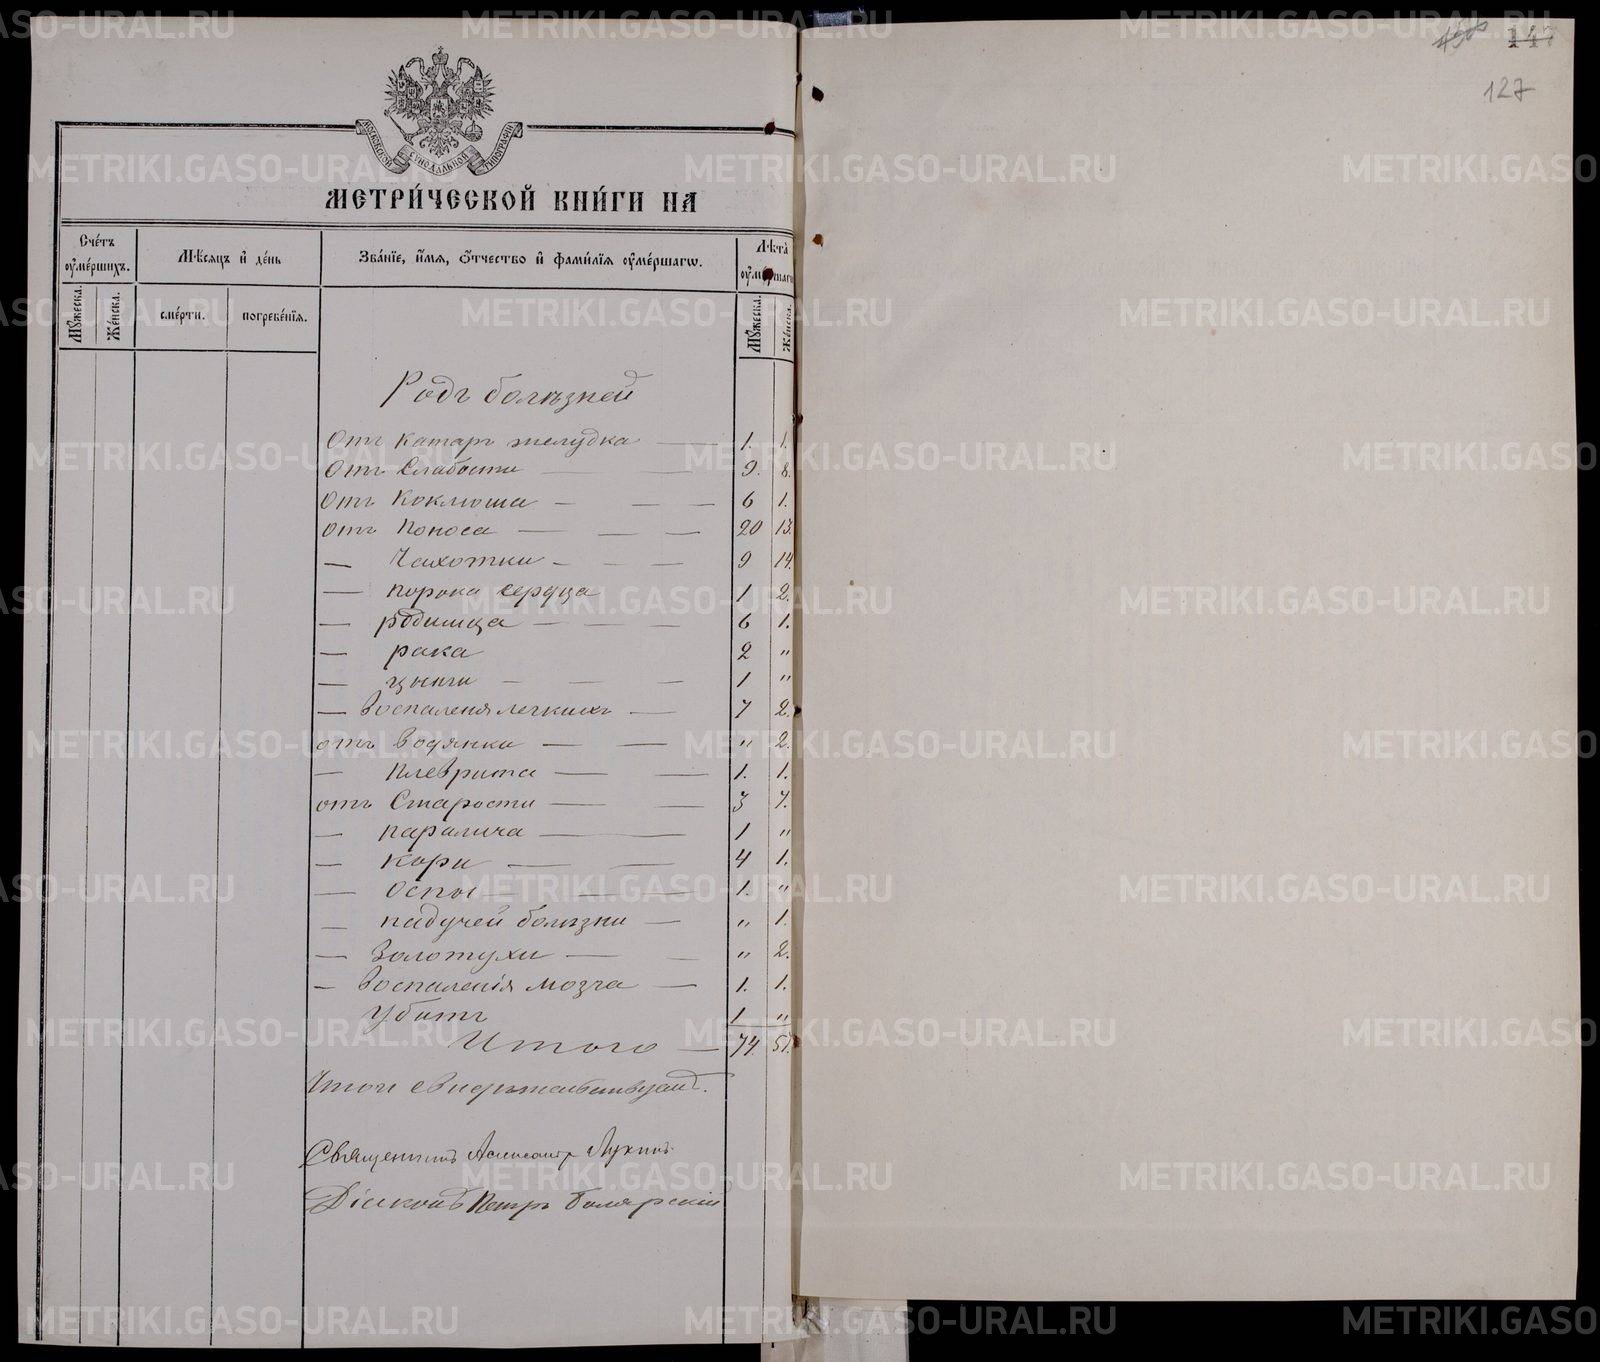 МОСКОВСКОЙ СУНОДАЛЬНОЙ ТИПОГРАФІИ
МЕТРИ́ЧЕСКОЙ КНИ́ГИ НА
Сче́тъ оумéршихъ.
Мѣсяцъ и҆ де́нь
Зва́нїе, и҆́мѧ, ѻ҆́тчество и҆ фами́лїѧ оумéршагѡ.
Лѣта̀ оумéршагѡ
Мꙋ́жеска.
Же́нска.
сме́рти.
погребе́нїѧ.
Мꙋ́жеска.
Же́нска.
Родъ болѣзней
Отъ Катаръ желудка — 1. 1.
Отъ Слабости — 9. 8.
Отъ Коклюша — — — 6 1.
отъ Поноса — — — 20 13.
— Чахотки — — — 9 14.
— порока сердца 1 2.
— родимца — — — 6 1.
— рака 2 "
— цынги — — — 1 "
— Воспаленя легкихъ — 7 2.
отъ Водянки — — " 2.
— Плеврита — — 1. 1.
отъ Старости — — 3 7.
— паралича — — 1 "
— кори — — 4 1.
— Оспы — — 1. "
— падучей болѣзни — " 1.
— Золотухи — — " 2.
— Воспаленія мозга — 1. 1.
Убитъ 1 "
Итого — 74. 57.
Итоги свидѣтельствуютъ.
Священникъ Александръ Лукинъ
Діаконъ Петръ Боярскій
147
127